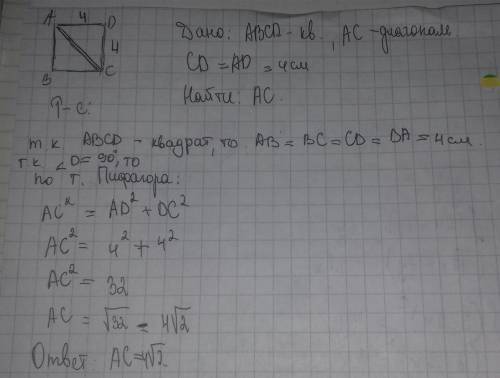 A 4 D
4
B C
Дано: ABCD - кв., AC - диагональ
CD = AD = 4 см
Найти: AC
Р-е:
т.к. ABCD - квадрат, то AB = BC = CD = DA = 4 см.
т.к. ∠D = 90°, то
по т. Пифагора:
AC² = AD² + DC²
AC² = 4² + 4²
AC² = 32
AC = √32 = 4√2
Ответ: AC=4√2.